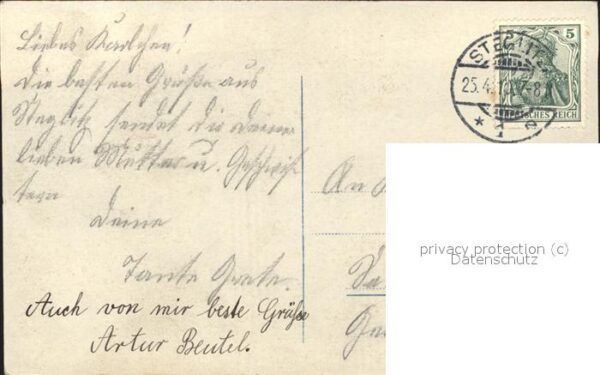 Liebes Karlchen!
Die besten Grüße aus
Steglitz sendet dir deine
lieben Mutter u. Geschwis-
tern
Deine
Tante Grete.
Auch von mir beste Grüße
Artur Beutel.
An
STEGLITZ
25.4. 7-8
5
DEUTSCHES REICH
privacy protection (c)
Datenschutz